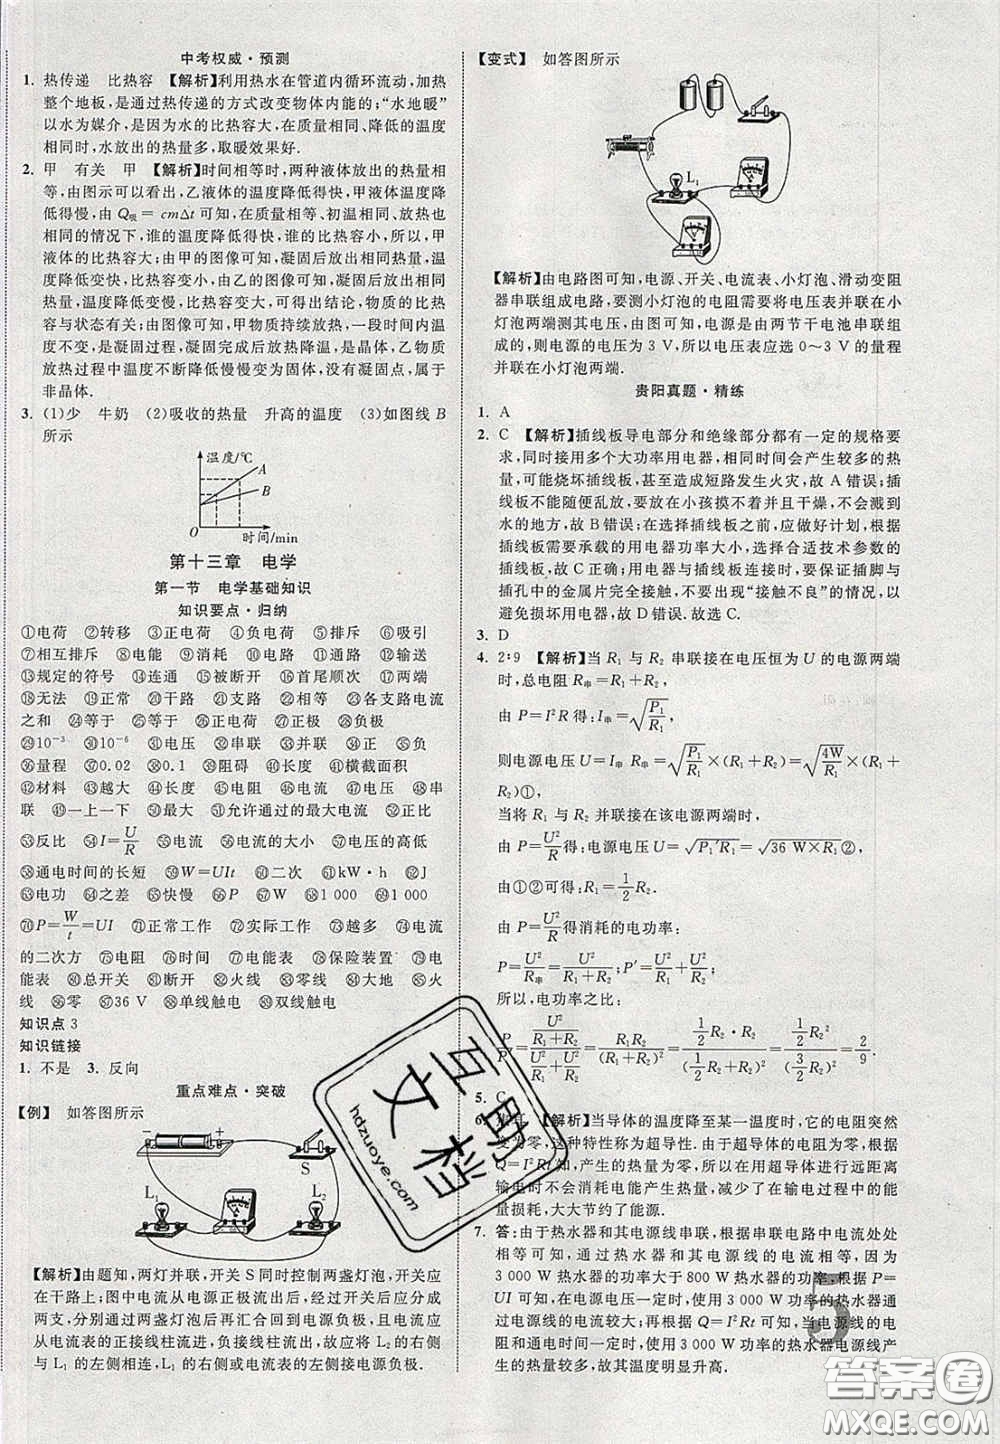 中考权威·预测
1. 热传递　比热容　【解析】利用热水在管道内循环流动,加热
整个地板,是通过热传递的方式改变物体内能的;“水地暖”
以水为媒介,是因为水的比热容大,在质量相同、降低的温度
相同时,水放出的热量多,取暖效果好.
2. 甲　有关　甲　【解析】时间相等时,两种液体放出的热量相
等,由图示可以看出,乙液体的温度降低得快,甲液体温度降
低得慢,由 Q吸=cmΔt 可知,在质量相等、初温相同、放热也
相同的情况下,谁的温度降低得快,谁的比热容小,所以,甲
液体的比热容大;由甲的图像可知,凝固后放出相同热量,
温度降低变快,比热容变小了,乙的图像可知,凝固后放出相
同热量,温度降低变慢,比热容变大了,可得出结论,物质比
热容与状态有关;由图像可知,甲物质持续放热,一段时间内
温度不变,是凝固过程,凝固完成后放热降温是晶体,乙物质
放热过程中温度不断降低慢慢变为固体,没有凝固点,属于
非晶体.
3. (1)少　牛奶　(2)吸收的热量　升高的温度　(3)如图线 B
所示
温度/℃
A
B
O
时间/min
第十三章　电学
第一节　电学基础知识
知识要点·归纳
①电荷　②转移　③正电荷　④负电荷　⑤排斥　⑥吸引
⑦相互排斥　⑧电能　⑨消耗　⑩电路　⑪通路　⑫输送
⑬规定的符号　⑭连通　⑮被断开　⑯首尾顺次　⑰两端
⑱无法　⑲正常　⑳干路　㉑支路　㉒相等　㉓各支路电流
之和　㉔等于　㉕等于　㉖定向　㉗正极　㉘负极
㉙10⁻³　㉚10⁻⁶　㉛电压　㉜串联　㉝并联　㉞正　㉟负
㊱量程　㊲0.02　㊳0.1　㊴阻碍　㊵长度　㊶横截面积
㊷材料　㊸越大　㊹长度　㊺电流　㊻电压　㊼电流　㊽串
联　㊾一上一下　㊿最大　51允许通过的最大电流　52正比
53反比　54I=U/R　55电流　56电流的大小　57电压的高低
58通电时间的长短　59W=UIt　60二次　61kW·h　62电能
63电功　64之差　65快慢　66P　67W　681 000　691 000
70P=W/t=UI　71正常工作　72实际工作　73越多　74电流
的二次方　75电阻　76时间　77电能表　78保险装置　79电
表　80总开关　81断开　82火线　83零线　84大地　85火
线　86零　8736 V　88单线触电　89双线触电
知识点 3
知识链接
1. 不是　3. 反向
重点难点·突破
【例】　如答图所示
−
+
S
L₁
L₂
【解析】由题知,两灯并联,开关 S 同时控制两盏灯泡,开关应
在干路上;图中电流从电源正极流出经过开关后应分成两
支,分别通过两盏灯泡后再汇合回负极,其中一支应该是先
从电流表的正接线柱流进,负接线柱流出,故应将 L₂ 的右侧
与 L₁ 的左侧相连,讫点选取电流表的右侧接电源负极.
【变式】　如答图所示
L₁
【解析】由电路图可知,电源、开关、电流表、小灯泡、滑动变阻
器串联组成电路,要测小灯泡的电阻需要将电压表并联在小
灯泡两端测其电压,由图可知,电源是由两节干电池串联组
成的,则电源的电压为 3 V,所以电压表应选 0～3 V 的量程
并联在小灯泡两端.
贵阳真题·精练
1. A
2. C　【解析】插线板导电部分和绝缘部分都有一定的规格要
求,同时接用多个大功率用电器,相同时间会产生较多的热
量,可能烧坏插线板,甚至造成短路发生火灾,故 A 错误;插
线板不能随便乱放,要放在小孩摸不着并且干燥,不会溅到
水的地方,故 B 错误;在选择插线板之前,应计算功率,根据
插线板需要承载的用电器功率大小,选择合适技术参数的
插线板,故 C 正确;用电器与插线板连接时,要保证插脚与
插孔中的金属片完全接触,不要出现“接触不良”的情况,
以避免损坏用电器,故 D 错误.故选 C.
3. D
4. 2∶9　【解析】当 R₁ 与 R₂ 串联接在电压恒为 U 的电源两端
时,总电阻 R串=R₁+R₂,
由 P=I²R 得:I串=√(P₁/R₁),
则电源电压 U=I串R串=√(P₁/R₁)×(R₁+R₂)=√(4W/R₁)×(R₁+
R₂)①,
当将 R₁ 与 R₂ 并联接在该电源两端时,
由 P=U²/R得:电源电压 U=√(P₁′R₁)=√(36 W×R₁)②,
由①②可得:R₁=1/2R₂.
由 P=U²/R得消耗的电功率:
P=U²/R串=U²/(R₁+R₂);P′=U²/R₁+U²/R₂;
所以,电功率之比:
P/P′=(U²/(R₁+R₂))/(U²/R₁+U²/R₂)=R₁R₂/(R₁+R₂)²=(1/2R₂·R₂)/(1/2R₂+R₂)²=(1/2R₂²)/(9/4R₂²)=2/9.
5. C
6. 　【解析】当导体的温度降至某一温度时,它的电阻突然
变为零,这种特性称为超导性.由于超导体的电阻为零,根据
Q=I²Rt 知,产生的热量为零,因此,将超导体进行远距离
输电时不会消耗电能产生热量,减少了在输电过程中的能
量损耗,大大节约了能源.
7. 答:由于热水器和其电源线串联,根据串联电路中电流处处
相等可知,通过热水器和其电源线的电流相等,因为
3 000 W 热水器的功率大于 800 W 热水器的功率,根据 P=
UI 可知,在电源电压一定时,使用 3 000 W 的热水器时,
通过电源线的电流较大;根据 Q=I²Rt 可知,当电源线的电
阻和通电时间一定时,使用 3 000 W 的热水器时,电源线产
生的热量较多,故其温度明显升高.
5
互助文档
hdzuoye.com
答案圈
MXQE.COM